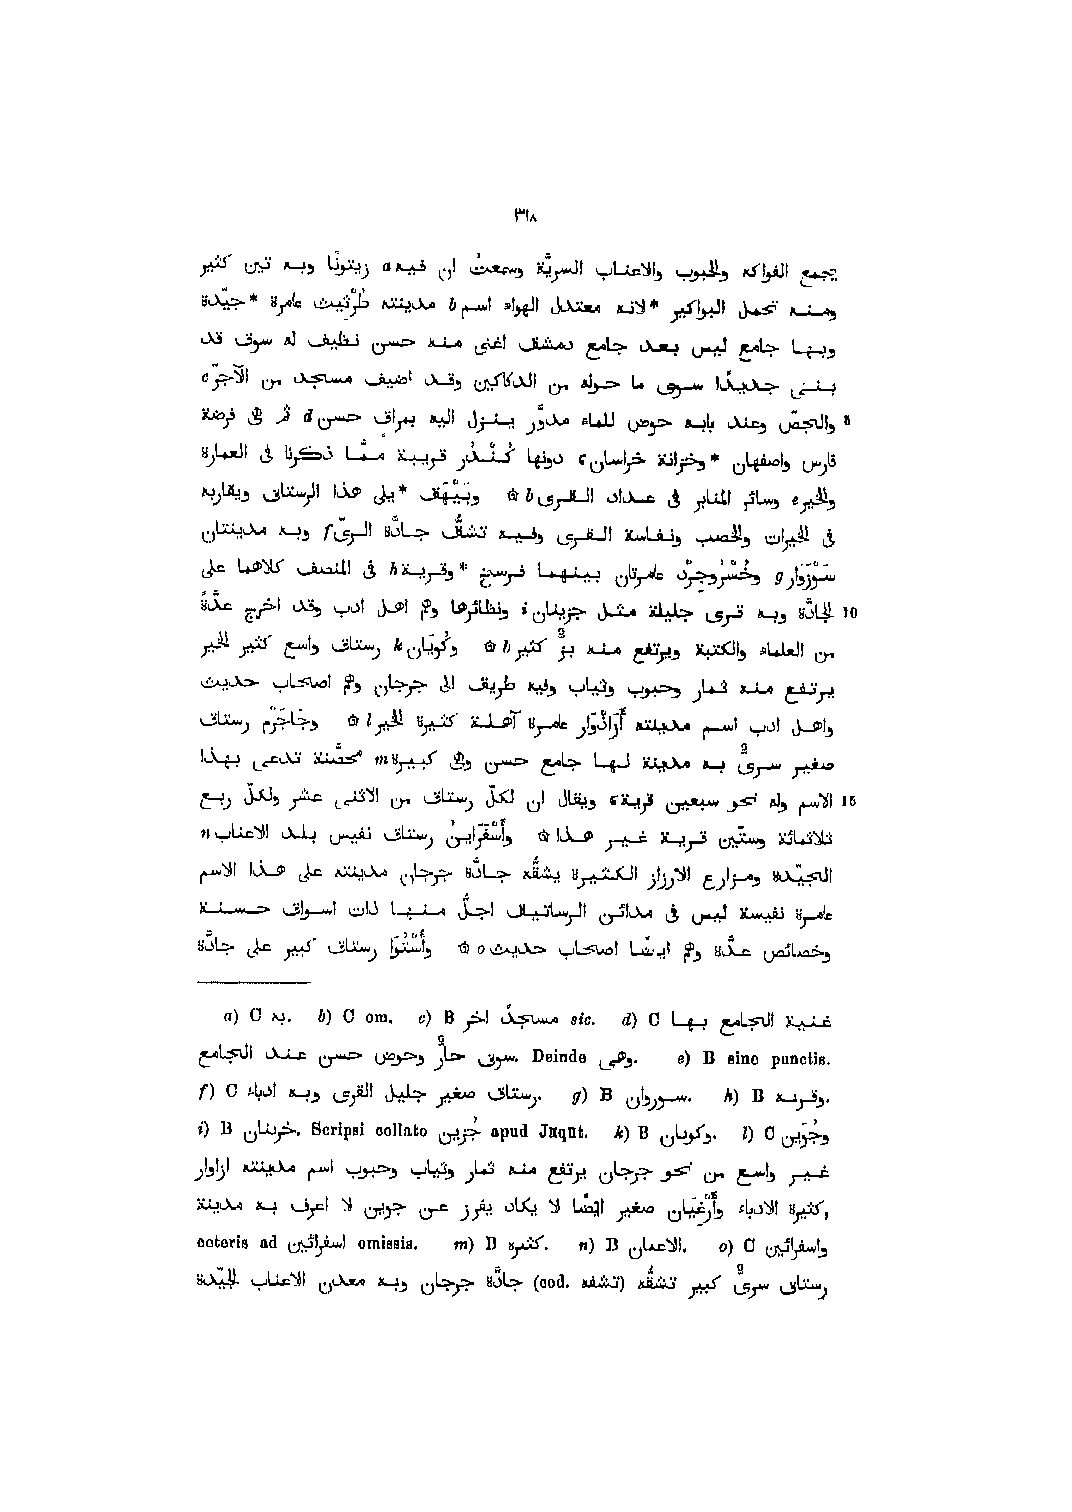 ٣١٨
تجمع الفواكه والحبوب والاعناب السريّة وسمعتُ ان فيه a زيتونًا وبه تين كثير
ومنه تحمل البواكير *لانه معتدل الهواء اسم b مدينته طُرَثِيث عامرة *جيّدة
وبها جامع ليس بعد جامع دمشق اغنى منه حسن نظيف له سوق قد
بنى جديدًا سوى ما حوله من الدكاكين وقد اضيف مسجد من الآجرّ c
والجصّ وعند بابه حوض للماء مدوَّر ينزل اليه بمراق حسن d ثم هى فرضة 5
فارس واصفهان *وخزانة خراسان e دونها كُنْدُر قريبة ممّا ذكرنا فى العمارة
والخير e وسائر المنابر فى عداد القرى b ۞ وبَيْهَق *يلى هذا الرستاق ويقاربه
فى الخيرات والخصب ونفاسة القرى وفيه تشقّ جادّة الرىّ f وبه مدينتان
سَبْزَوَار g وخُسْرُوجِرْد عامرتان بينهما فرسخ *وقرية h فى المنصف كلاهما على
الجادّة وبه قرى جليلة مثل جزينان i ونظائرها ولهم اهل ادب وقد اخرج عدّةً 10
من العلماء والكتبة ويرتفع منه بزّ كثير b ۞ وكُويَان k رستاق واسع كثير الخير
يرتفع منه ثمار وحبوب وثياب وفيه طريق الى جرجان ولهم اصحاب حديث
واهل ادب اسم مدينته أَزَاذْوَار عامرة آهلة كثيرة الخير l ۞ وجَاجَرْم رستاق
صغير سرىّ به مدينة لها جامع حسن وهى كبيرة m محصّنة تدعى بهذا
الاسم وله نحو سبعين قرية e ويقال ان لكلّ رستاق من الاثنى عشر ولكلّ ربع 15
ثلاثمائة وستّين قرية غير هذا ۞ وأَسْفَرَايِينُ رستاق نفيس بلد الاعناب n
الجيّدة ومزارع الارزاز الكثيرة يشقّه جادّة جرجان مدينته على هذا الاسم
عامرة نفيسة ليس فى مدائن الرساتيق اجلّ منها ذات اسواق حسنة
وخصائص عدّة ولهم ايضًا اصحاب حديث o ۞ وأُسْتُوَا رستاق كبير على جادّة
a) C به. b) C om. c) B مسجدٌ اخر sic. d) C غنية الجامع بها
سوق حارٌّ وحوض حسن عند الجامع. Deinde وهى. e) B sine punctis.
f) C رستاق صغير جليل القرى وبه ادباء. g) B سوروان. h) B وقرنه.
i) B خرينان. Scripsi collato جُزين apud Jâqût. k) B وكوبان. l) C وجُوَين
غير واسع من نحو جرجان يرتفع منه ثمار وثياب وحبوب اسم مدينته ازاوار
كثيرة الادباء وأَرْغِيَان صغير ايضًا لا يكاد يفرز عن جوين لا اعرف به مدينة,
ceteris ad اسفرائين omissis. m) B كثيره. n) B الاعمان. o) C واسفرائين
رستاق سرىّ كبير تشقّه (cod. تشفه) جادّة جرجان وبه معدن الاعناب الجيّدة